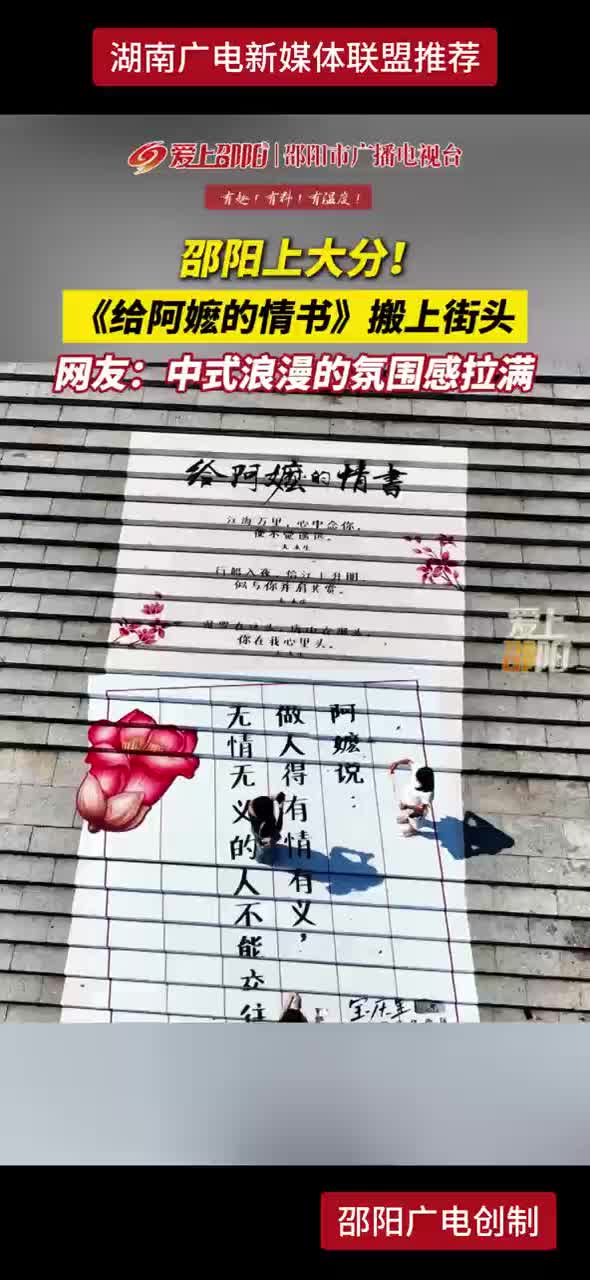 湖南广电新媒体联盟推荐
爱上邵阳 | 邵阳市广播电视台
有趣！有料！有温度！
邵阳上大分！
《给阿嬷的情书》搬上街头
网友：中式浪漫的氛围感拉满
给阿嬷的情書
江海万里，心中念你，
便不觉遥远。
你在我心里头。
爱上
邵阳
阿嬷说：
做人得有情有义，
无情无义的人不能交往
邵阳广电创制